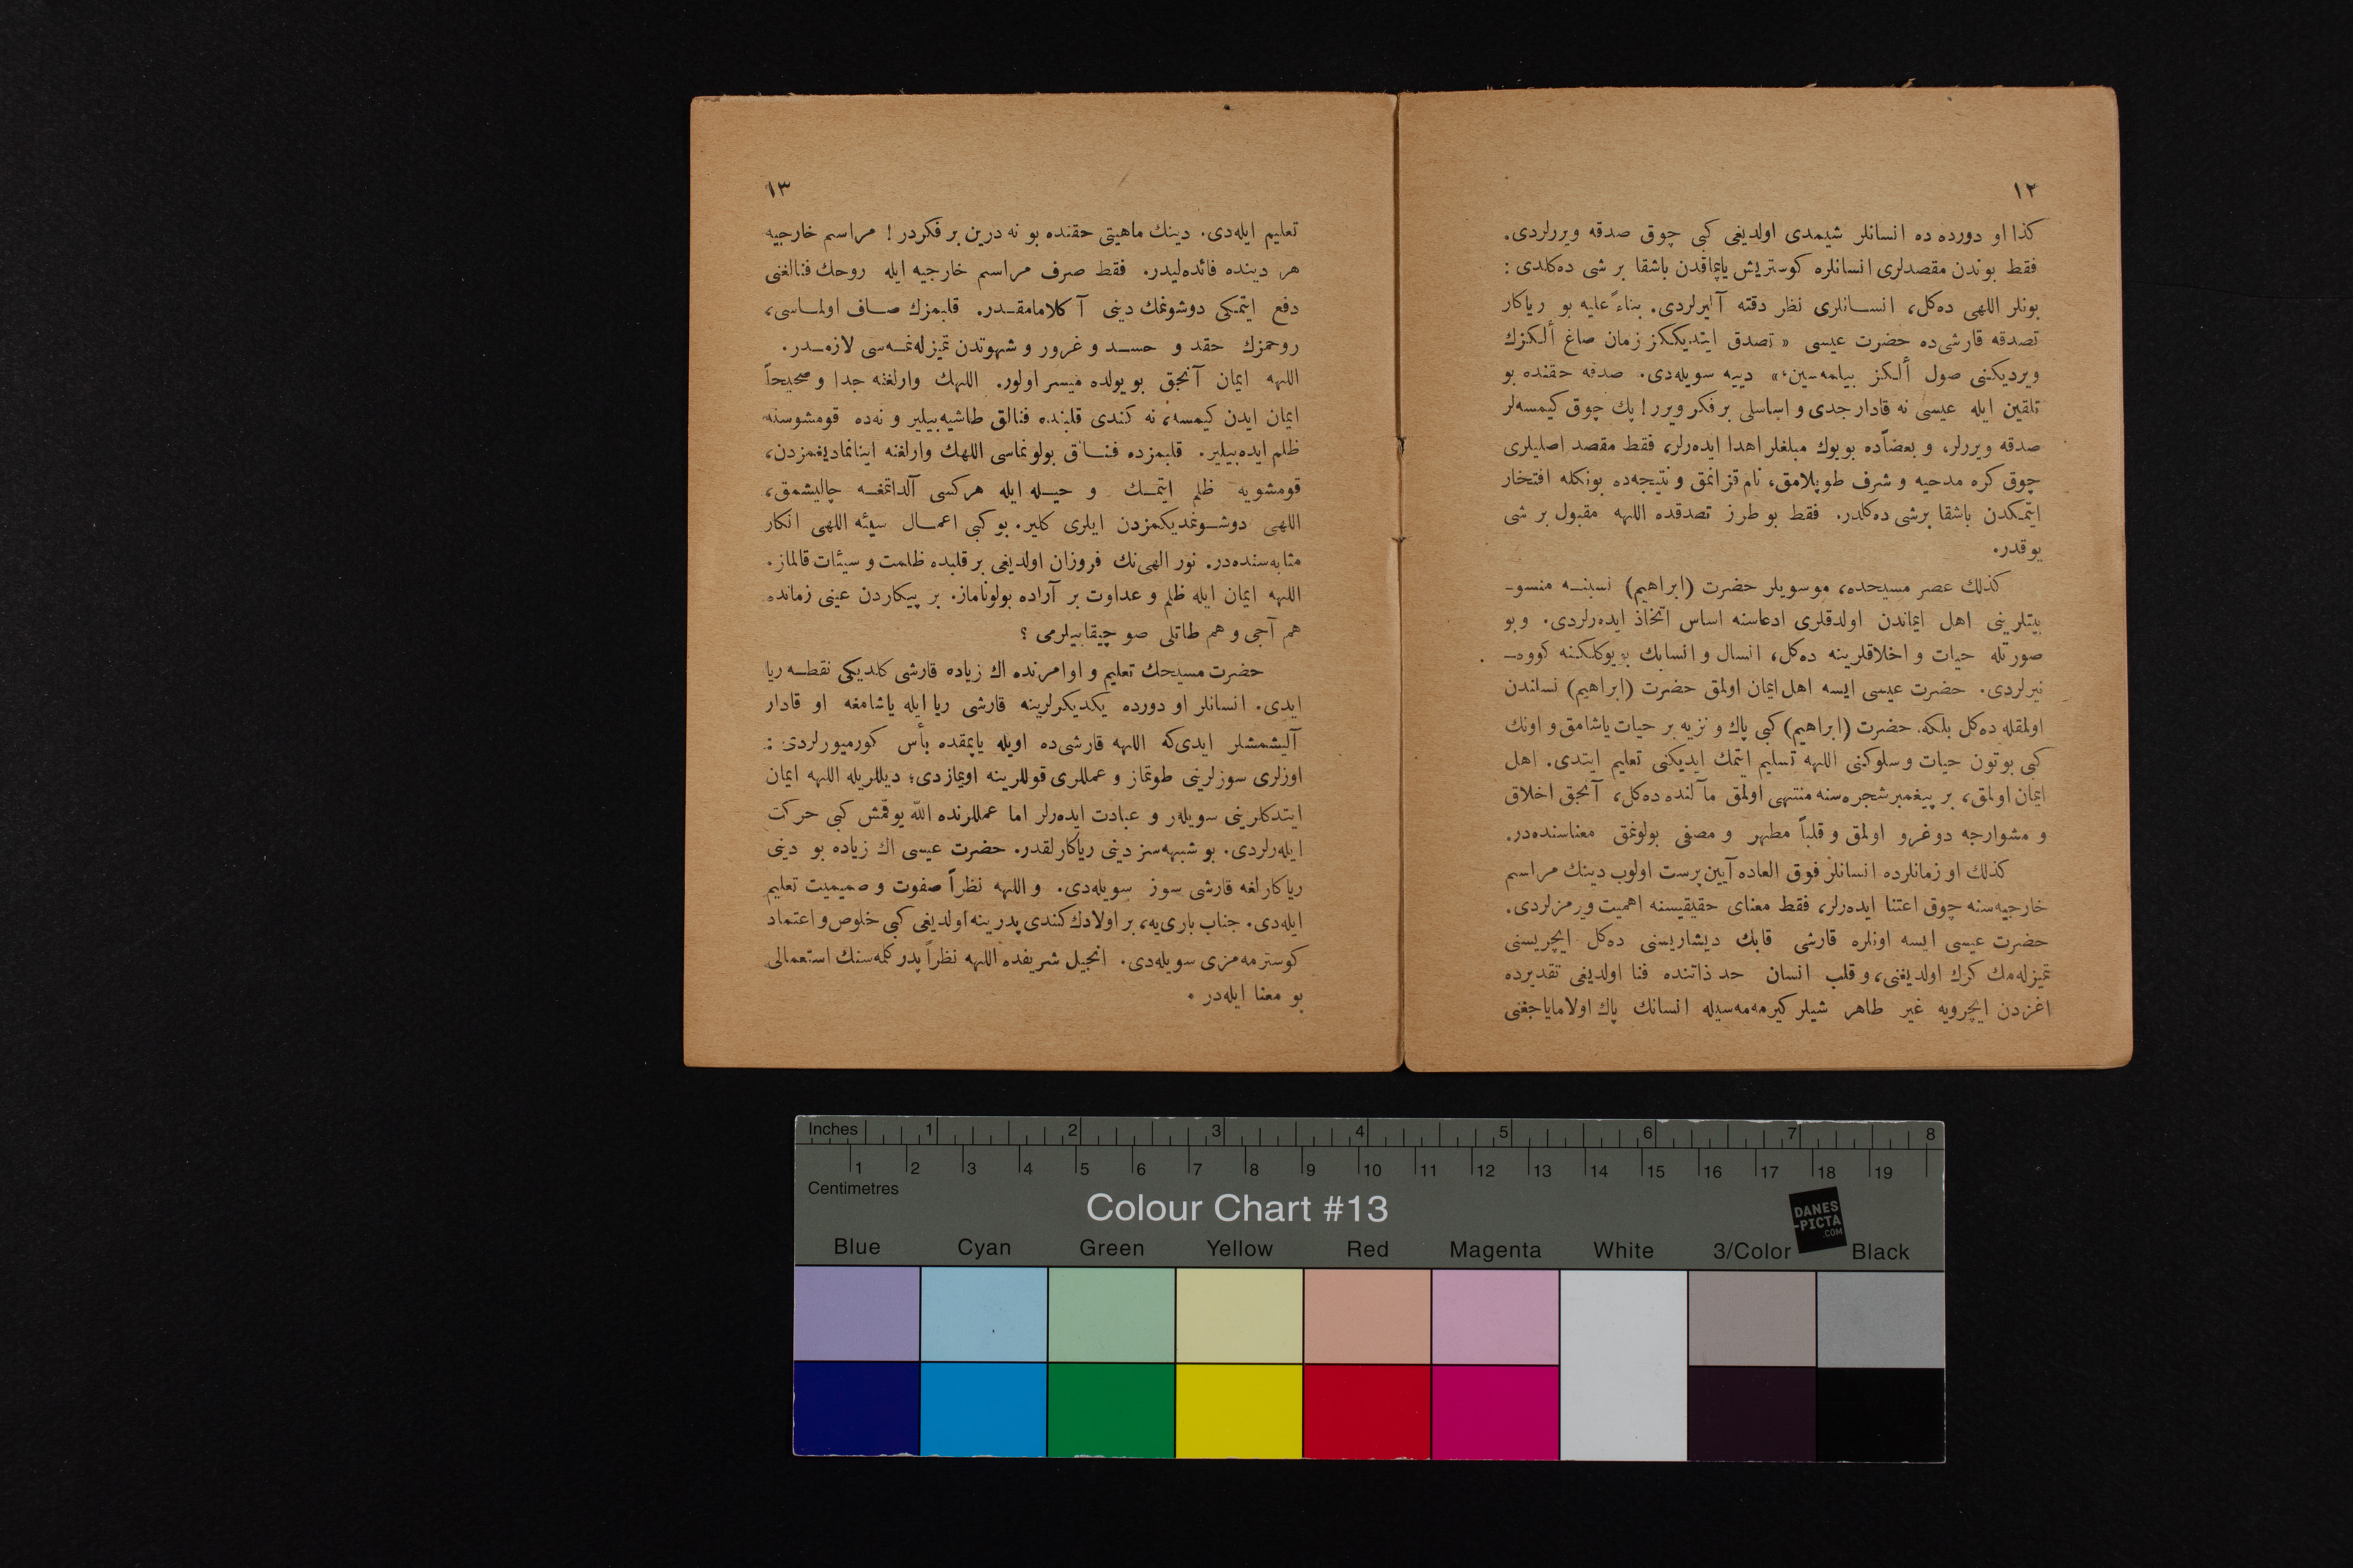 ١٢
كذا او دورده ده انسانلر شیمدی اولدیغی كبی چوق صدقه ویررلردی.
فقط بوندن مقصدلری انسانلره كوستریش یاپماقدن باشقا بر شی دەكلدی :
بونلر اللهی دەكل، انسانلری نظر دقته آلیرلردی. بناءً علیه بو ریاكار
تصدقه قارشی‌ده حضرت عیسی « تصدق ایتدیككز زمان صاغ ألكزك
ویردیكنی صول ألكز بیلمەسین،» دییه سویلەدی. صدقه حقنده بو
تلقین ایله عیسی نه قادار جدی و اساسلی بر فكر ویرر! پك چوق كیمسەلر
صدقه ویررلر، و بعضاًده بویوك مبلغلر اهدا ایدەرلر، فقط مقصد اصلیلری
چوق كره مدحیه و شرف طوپلامق، نام قزانمق و نتیجەده بونكله افتخار
ایتمكدن باشقا برشی دەكلدر. فقط بو طرز تصدقده اللهه مقبول بر شی
یوقدر.
كذلك عصر مسیحده، موسویلر حضرت (ابراهیم) نسبنه منسو-
بیتلرینی اهل ایماندن اولدقلری ادعاسنه اساس اتخاذ ایدەرلردی. و بو
صورتله حیات و اخلاقلرینه دەكل، انسال و انسابك بویوكلكنه كووە-
نیرلردی. حضرت عیسی ایسه اهل ایمان اولمق حضرت (ابراهیم) نسلندن
اولمقله دەكل بلكه. حضرت (ابراهیم) كبی پاك و نزیه بر حیات یاشامق و اونك
كبی بوتون حیات و سلوكنی اللهه تسلیم ایتمك ایدیكنی تعلیم ایتدی. اهل
ایمان اولمق، بر پیغمبر شجرەسنه منتهی اولمق مآلنده دەكل، آنجق اخلاق
و مشوارجه دوغرو اولمق و قلباً مطهر و مصفی بولونمق معناسنده‌در.
كذلك او زمانلرده انسانلر فوق العاده آیین پرست اولوب دینك مراسم
خارجیەسنه چوق اعتنا ایدەرلر، فقط معنای حقیقیسنه اهمیت ویرمزلردی.
حضرت عیسی ایسه اونلره قارشی قابك دیشاریسنی دەكل ایچریسنی
تمیزلەمك كرك اولدیغنی، و قلب انسان حد ذاتنده فنا اولدیغی تقدیرده
اغزدن ایچرویه غیر طاهر شیلر كیرمەمەسیله انسانك پاك اولامایاجغنی
١٣
تعلیم ایلەدی. دینك ماهیتی حقنده بو نه درین بر فكردر! مراسم خارجیه
هر دینده فائده‌لیدر. فقط صرف مراسم خارجیه ایله روحك فنالغنی
دفع ایتمكی دوشونمك دینی آكلامامقدر. قلبمزك صاف اولماسی،
روحمزك حقد و حسد و غرور و شهوتدن تمیزلەنمەسی لازمدر.
اللهه ایمان آنجق بو یولده میسر اولور. اللهك وارلغنه جدا و صحیحاً
ایمان ایدن كیمسه، نه كندی قلبنده فنالق طاشیەبیلیر و نەده قومشوسنه
ظلم ایدەبیلیر. قلبمزده فنالق بولونماسی اللهك وارلغنه اینانمادیغمزدن،
قومشویه ظلم ایتمك و حیله ایله هركسی آلداتمغه چالیشمق،
اللهی دوشونمدیكمزدن ایلری كلیر. بو كبی اعمال سیئه اللهی انكار
مثابەسنده‌در. نور الهی‌نك فروزان اولدیغی بر قلبده ظلمت و سیئات قالماز.
اللهه ایمان ایله ظلم و عداوت بر آراده بولوناماز. بر پیكاردن عینی زمانده
هم آجی و هم طاتلی صو چیقابیلرمی ؟
حضرت مسیحك تعلیم و اوامرنده اك زیاده قارشی كلدیكی نقطه ریا
ایدی. انسانلر او دورده یكدیكرلرینه قارشی ریا ایله یاشامغه او قادار
آلیشمشلر ایدی‌كه اللهه قارشی‌ده اویله یاپمقده بأس كورمیورلردی :
اوزلری سوزلرینی طوتماز و عمللری قوللرینه اویمازدی؛ دیللریله اللهه ایمان
ایتدكلرینی سویلەر و عبادت ایدەرلر اما عمللرنده الله یوقمش كبی حركت
ایلەرلردی. بو شبهەسز دینی ریاكارلقدر. حضرت عیسی اك زیاده بو دینی
ریاكارلغه قارشی سوز سویلەدی. و اللهه نظراً صفوت و صمیمیت تعلیم
ایلەدی. جناب باری‌یه، بر اولادك كندی پدرینه اولدیغی كبی خلوص و اعتماد
كوسترمەمزی سویلەدی. انجیل شریفده اللهه نظراً پدر كلمەسنك استعمالی
بو معنا ایله‌در.
Inches 1 2 3 4 5 6 7 8
1 2 3 4 5 6 7 8 9 10 11 12 13 14 15 16 17 18 19
Centimetres
Colour Chart #13
DANES
-PICTA
.COM
Blue Cyan Green Yellow Red Magenta White 3/Color Black